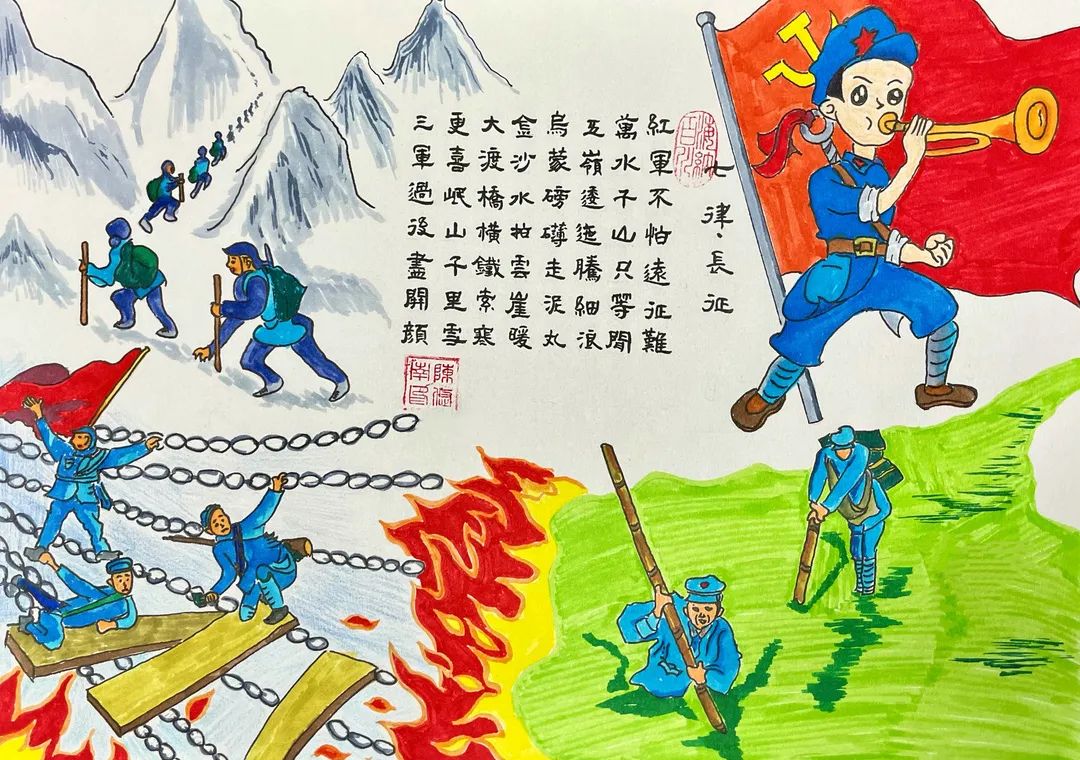 七律·長征
紅軍不怕遠征難
萬水千山只等閒
五嶺逶迤騰細浪
烏蒙磅礴走泥丸
金沙水拍雲崖暖
大渡橋橫鐵索寒
更喜岷山千里雪
三軍過後盡開顏
海納百川